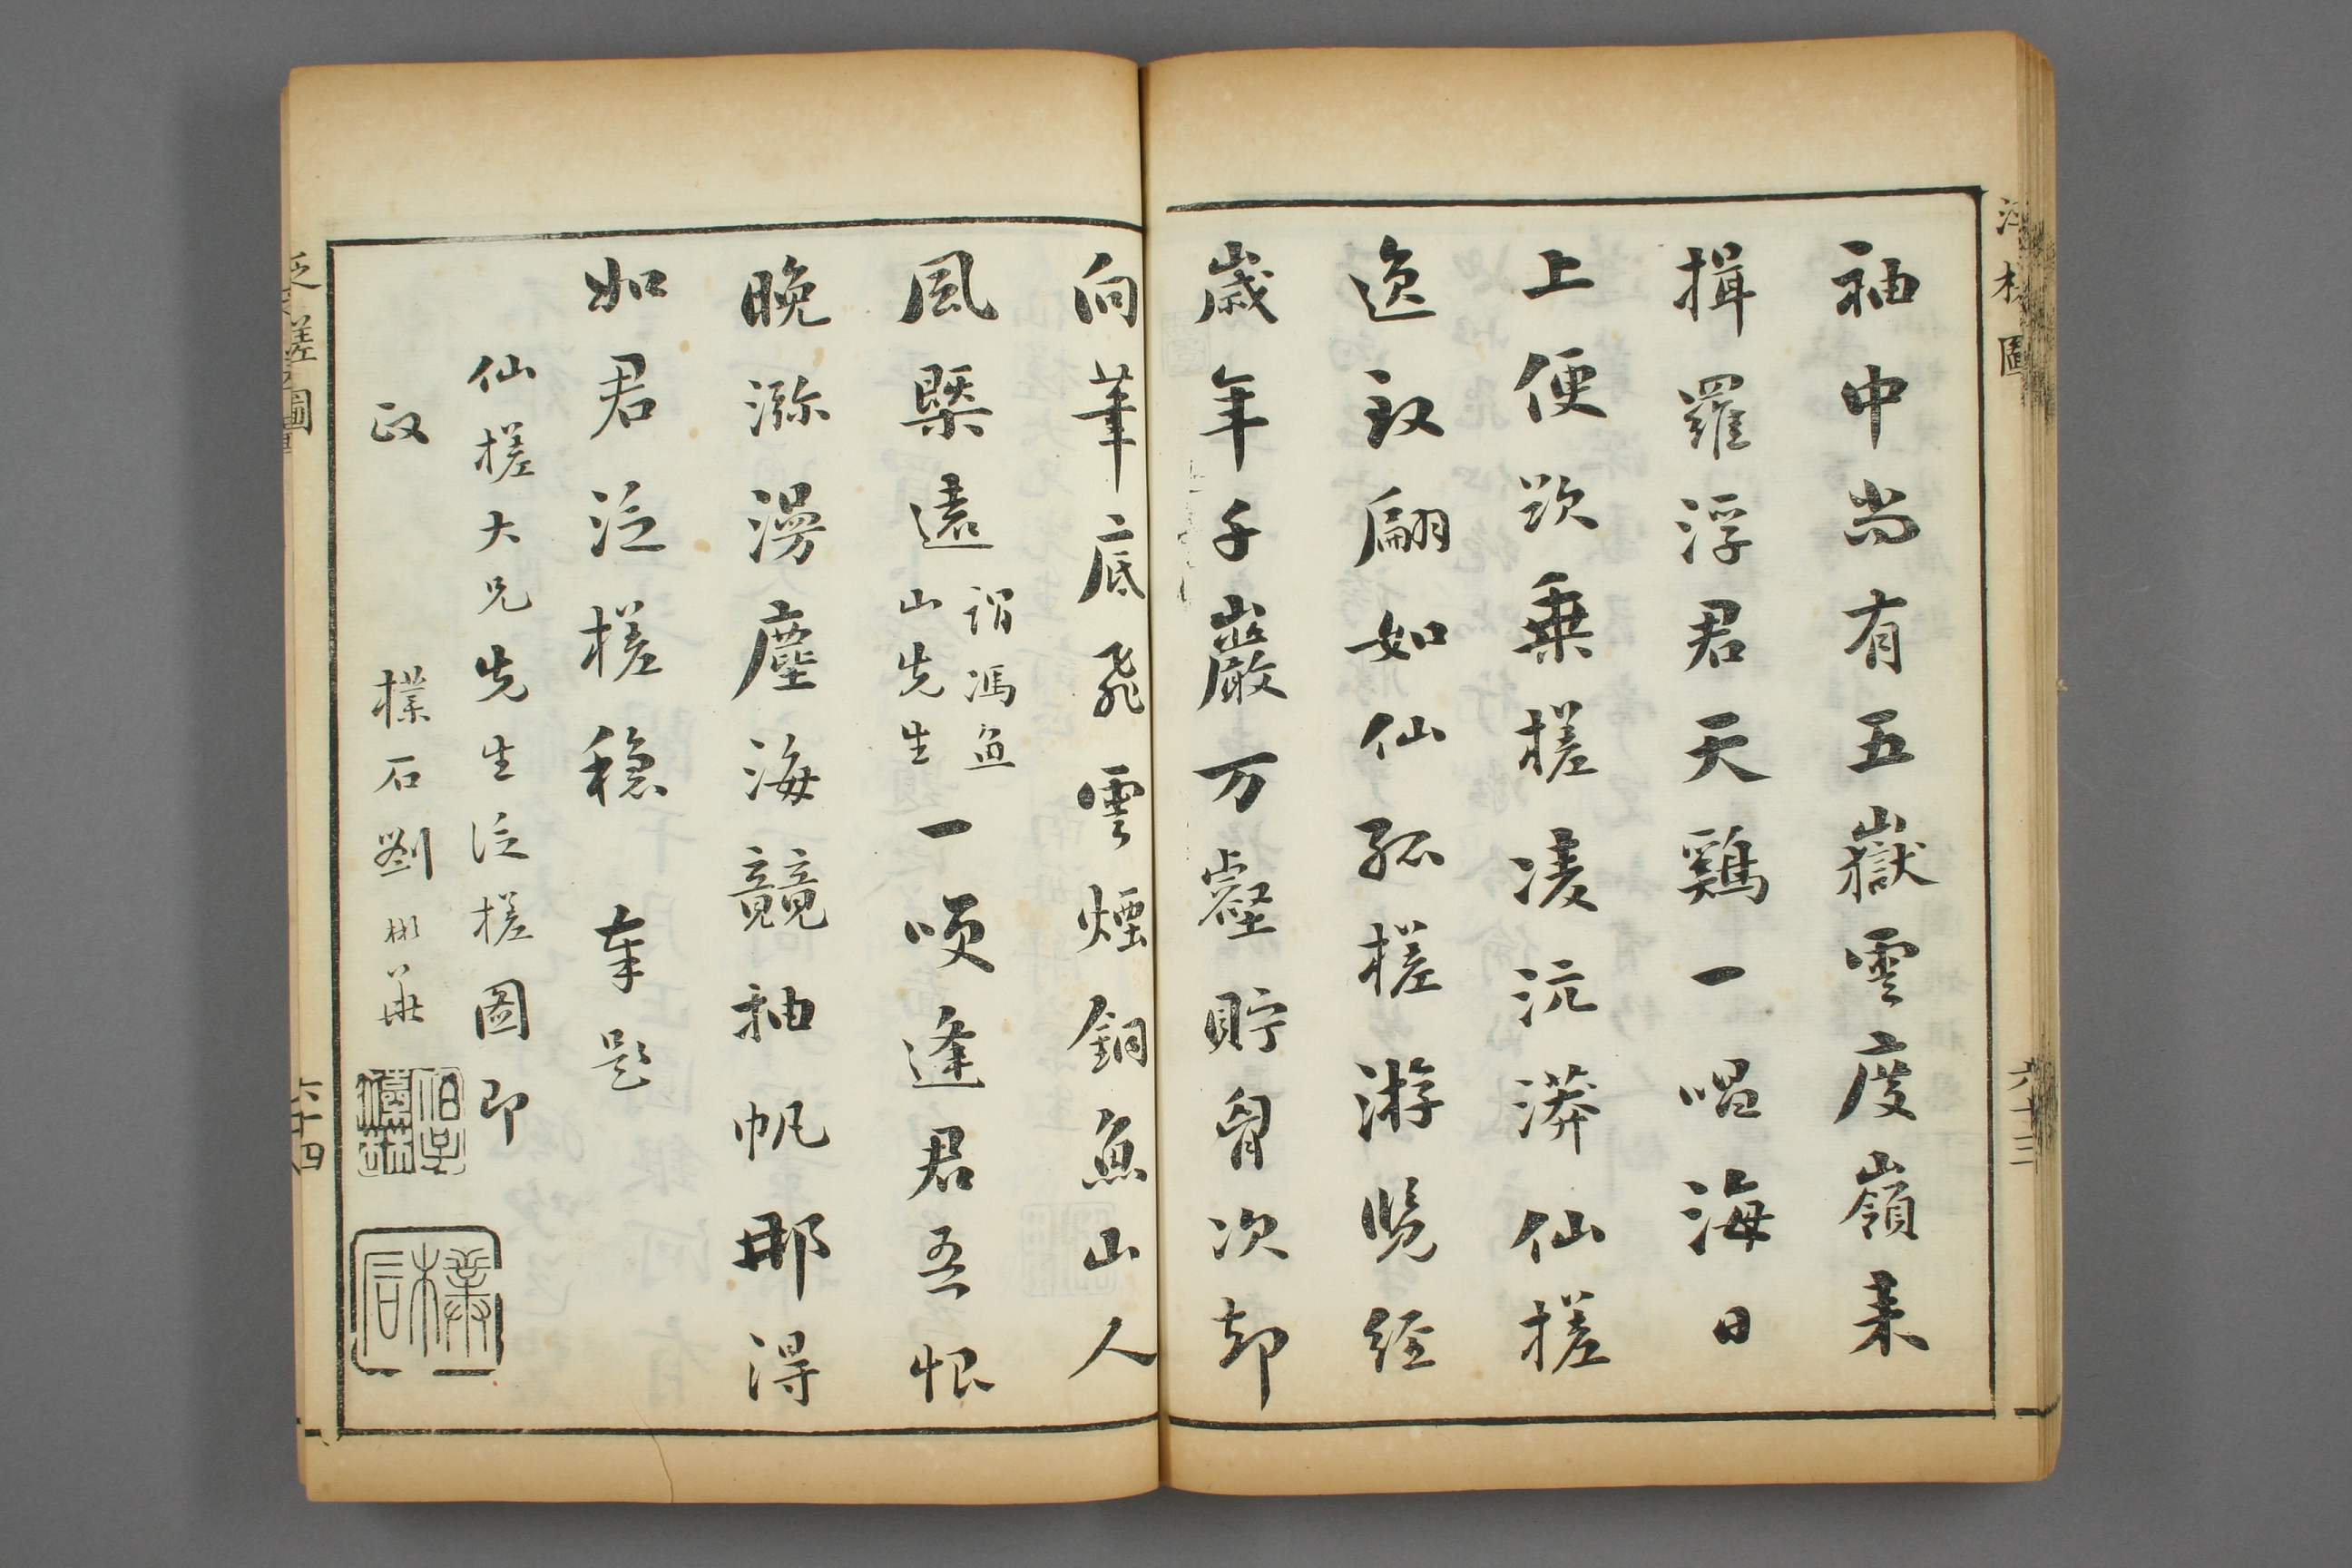 袖中尚有五嶽雲度嶺来
揖羅浮君天鷄一唱海日
上便欲乗槎凌沆漭仙槎
逸致翩如仙孤槎游览经
歳年千巖万壑貯胷次却
向筆底飛雲煙銅魚山人
風槩遠
謂馮魚
山先生
一唉逢君吾恨
晚瀰漫塵海競抽帆那得
如君泛槎穏 奉題
仙槎大兄先生泛槎圖即
政 樸石劉彬華
樸石
泛槎圖
六十三
六十四